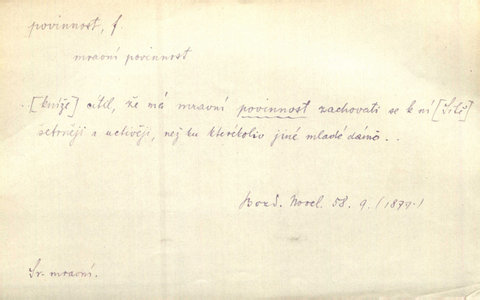 povinnost, f.
mravní povinnost
..[kníže] cítil, že má mravní povinnost zachovati se k ní
šetrněji a uctivěji, nej ku kterékoliv jiné mladé dámě...
Novel. 58. 9. (1879.)
Sr. mravní.